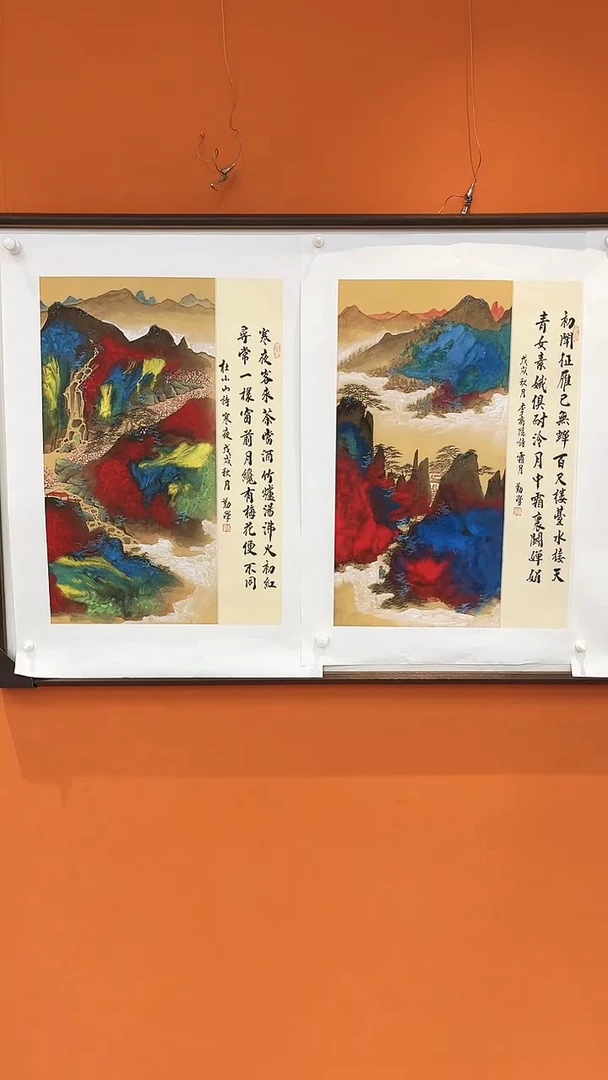 寒夜客來茶當酒竹爐湯沸火初紅
尋常一樣窗前月纔有梅花便不同
杜小山詩寒夜戊戌秋月 勤學
初聞征雁已無蟬百尺樓臺水接天
青女素娥俱耐冷月中霜裏鬪嬋娟
戊戌秋月李商隱詩霜月 勤學